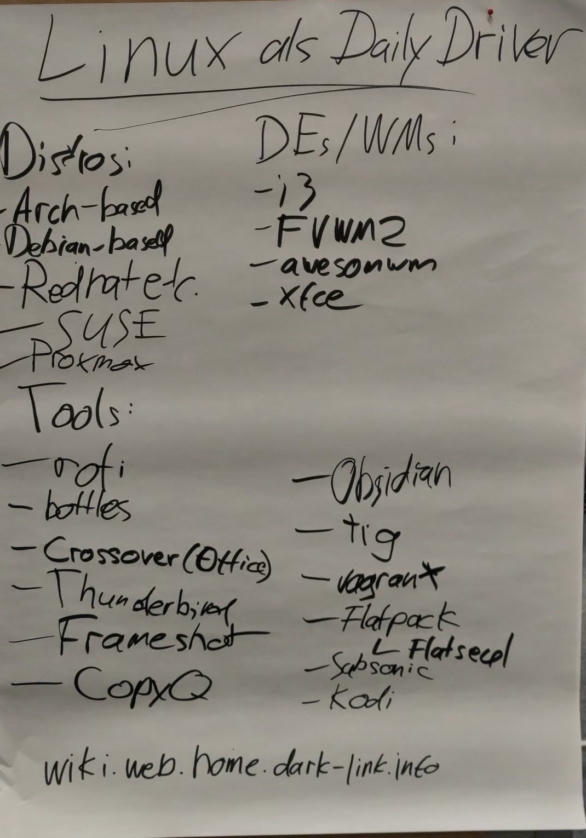 Linux als Daily Driver
Distros:
-Arch-based
Debian-based
-Redhat etc.
- SUSE
- Proxmox
DEs/WMs:
-i3
-FVWM2
-awesomwm
-xfce
Tools:
-rofi
-bottles
-Crossover (Office)
-Thunderbird
-Frameshot
-CopyQ
-Obsidian
-tig
-vagrant
-Flatpack
↳ Flatseal
-Subsonic
-Kodi
wiki.web.home.dark-link.info